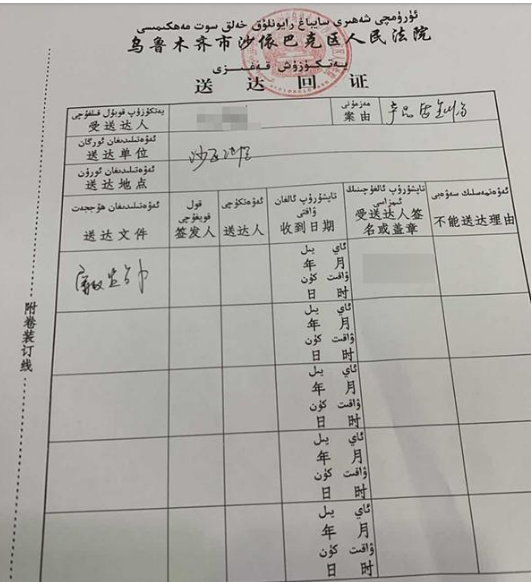 ئۈرۈمچى شەھىرى سايباغ رايونلۇق خەلق سوت مەھكىمىسى
乌鲁木齐市沙依巴克区人民法院
يەتكۈزۈش قەغىزى
送达回证
يەتكۈزۈپ قوبۇل قىلغۇچى
受送达人
مەزمۇنى
案由
产品
ئەۋەتىلىدىغان ئورگان
送达单位
ئەۋەتىلىدىغان ئورۇن
送达地点
ئەۋەتىلىدىغان ھۆججەت
送达文件
قول قويغۇچى
签发人
ئەۋەتكۈچى
送达人
تاپشۇرۇپ ئالغان ۋاقتى
收到日期
تاپشۇرۇپ ئالغۇچىنىڭ ئىمزاسى
受送达人签
名或盖章
ئەۋەتەلمەسلىك سەۋەبى
不能送达理由
ئاي يىل
年 月
ۋاقىت كۈن
日 时
ئاي يىل
年 月
ۋاقىت كۈن
日 时
ئاي يىل
年 月
ۋاقىت كۈن
日 时
ئاي يىل
年 月
ۋاقىت كۈن
日 时
ئاي يىل
年 月
ۋاقىت كۈن
日 时
附卷装订线